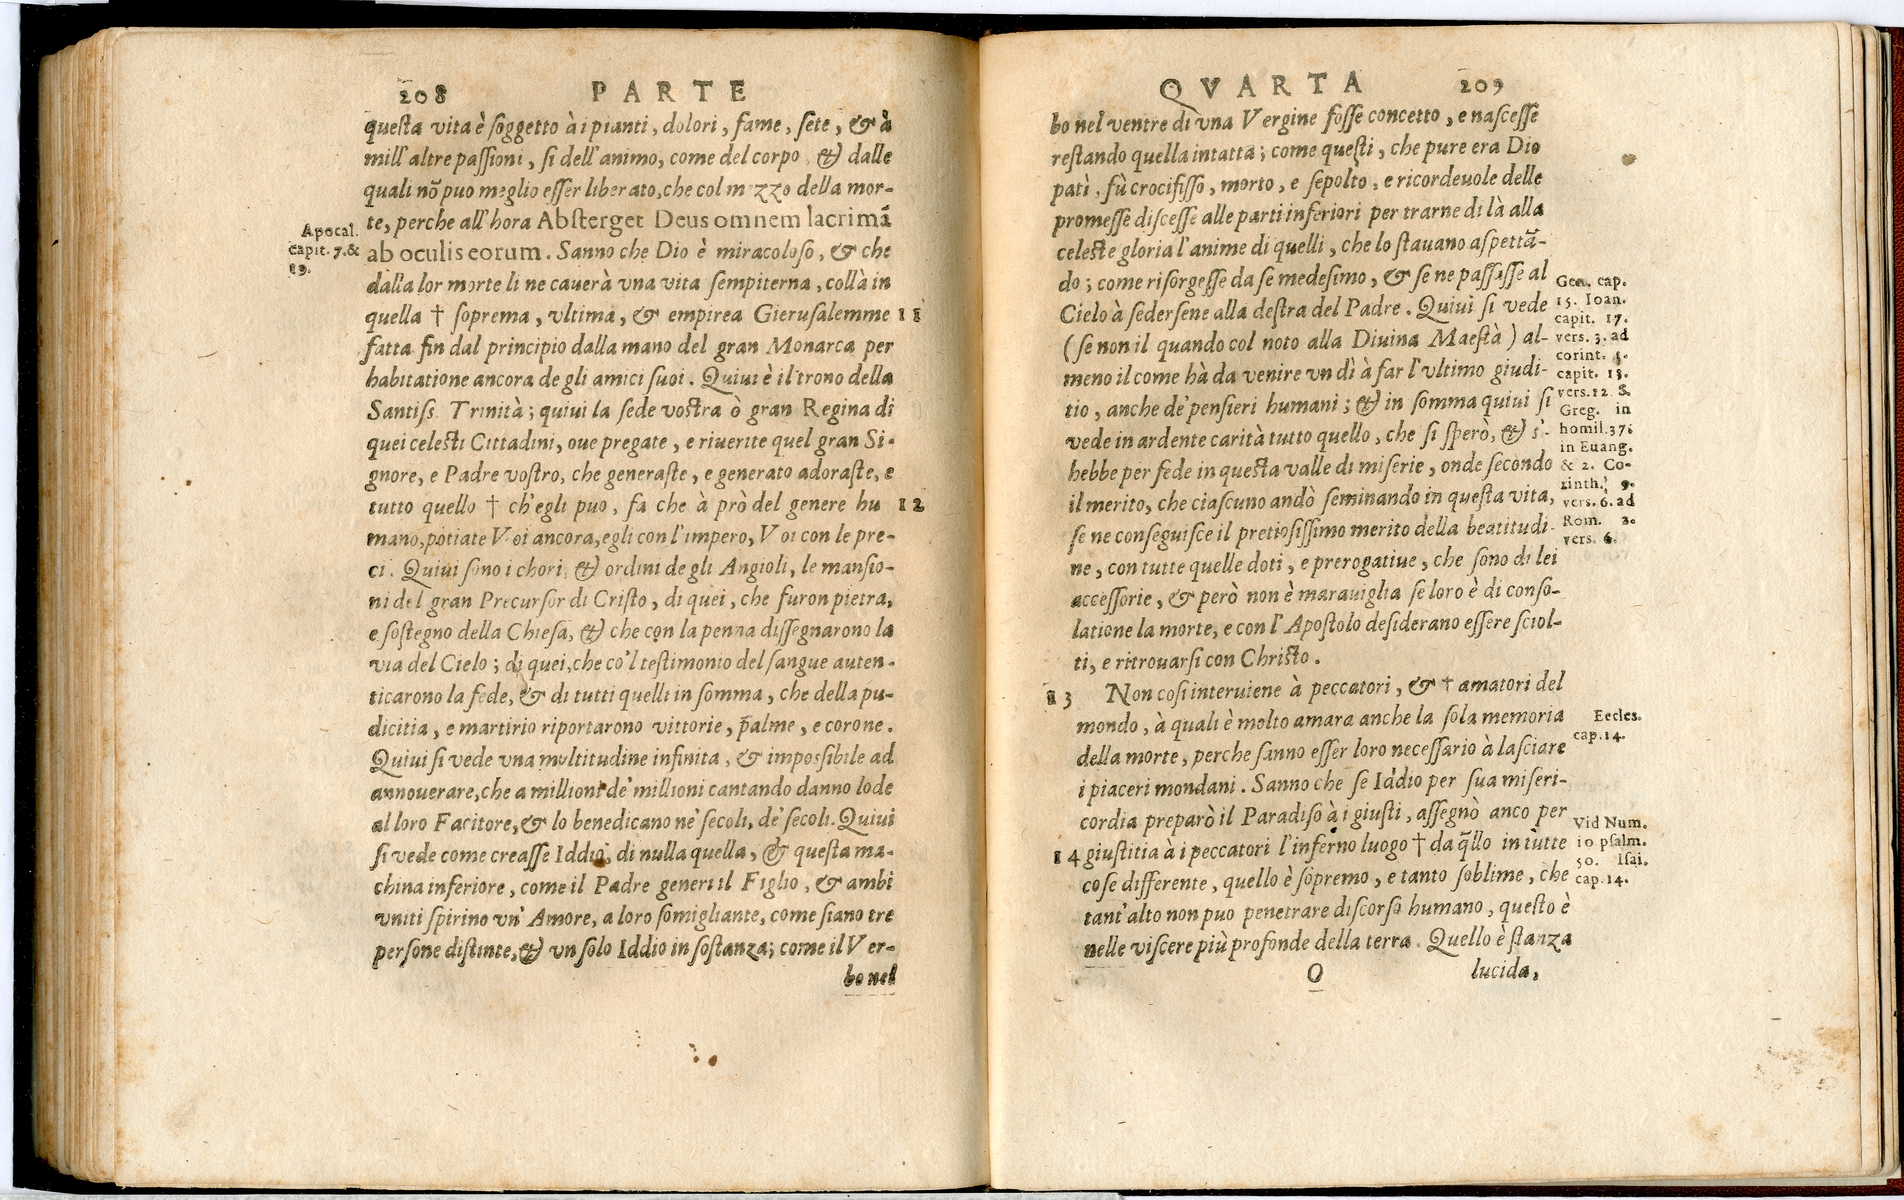 208 PARTE
questa vita è soggetto à i pianti, dolori, fame, sete, & à
mill' altre passioni, si dell' animo, come del corpo, & dalle
quali nõ puo meglio esser liberato, che col mezzo della mor-
te, perche all' hora Absterget Deus omnem lacrimã
ab oculis eorum. Sanno che Dio è miracoloso, & che
dalla lor morte li ne cauerà vna vita sempiterna, collà in
quella † soprema, vltima, & empirea Gierusalemme
fatta fin dal principio dalla mano del gran Monarca per
habitatione ancora de gli amici suoi. Quiui è il trono della
Santiss. Trinità; quiui la sede vostra ò gran Regina di
quei celesti Cittadini, oue pregate, e riuerite quel gran Si-
gnore, e Padre vostro, che generaste, e generato adoraste, e
tutto quello † ch' egli puo, fa che à prò del genere hu
mano, potiate Voi ancora, egli con l' impero, Voi con le pre-
ci. Quiui sono i chori, & ordini de gli Angioli, le mansio-
ni del gran Precursor di Cristo, di quei, che furon pietra,
e sostegno della Chiesa, & che con la penna dissegnarono la
via del Cielo; di quei, che co'l testimonio del sangue auten-
ticarono la fede, & di tutti quelli in somma, che della pu-
dicitia, e martirio riportarono vittorie, palme, e corone.
Quiui si vede vna moltitudine infinita, & impossibile ad
annouerare, che a millioni de' millioni cantando danno lode
al loro Facitore, & lo benedicano ne' secoli, de' secoli. Quiui
si vede come creasse Iddio, di nulla quella, & questa ma-
china inferiore, come il Padre generi il Figlio, & ambi
vniti spirino vn' Amore, a loro somigliante, come siano tre
persone distinte, & vn solo Iddio in sostanza; come il Ver-
bo nel
Apocal.
capit. 7. &
19.
11
12
QVARTA 209
bo nel ventre di vna Vergine fosse concetto, e nascesse
restando quella intatta; come questi, che pure era Dio
patì, fù crocifisso, morto, e sepolto, e ricordeuole delle
promesse discesse alle parti inferiori per trarne di là alla
celeste gloria l' anime di quelli, che lo stauano aspettã-
do; come risorgesse da se medesimo, & se ne passasse al
Cielo à sedersene alla destra del Padre. Quiui si vede
(se non il quando col noto alla Diuina Maestà) al-
meno il come hà da venire vn dì à far l' vltimo giudi-
tio, anche de' pensieri humani; & in somma quiui si
vede in ardente carità tutto quello, che si sperò, & s'-
hebbe per fede in questa valle di miserie, onde secondo
il merito, che ciascuno andò seminando in questa vita,
se ne conseguisce il pretiosissimo merito della beatitudi-
ne, con tutte quelle doti, e prerogatiue, che sono di lei
accessorie, & però non è marauiglia se loro è di conso-
latione la morte, e con l' Apostolo desiderano essere sciol-
ti, e ritrouarsi con Christo.
13 Non cosi interuiene à peccatori, & † amatori del
mondo, à quali è molto amara anche la sola memoria
della morte, perche sanno esser loro necessario à lasciare
i piaceri mondani. Sanno che se Iddio per sua miseri-
cordia preparò il Paradiso à i giusti, assegnò anco per
14 giustitia à i peccatori l' inferno luogo † da q̃llo in tutte
cose differente, quello è sopremo, e tanto soblime, che
tant' alto non puo penetrare discorso humano, questo è
nelle viscere più profonde della terra. Quello è stanza
O lucida,
Gen. cap.
15. Ioan.
capit. 17.
vers. 3. ad
corint. 1.
capit. 13.
vers. 12. &
Greg. in
homil. 37.
in Euang.
& 2. Co-
rinth. 9.
vers. 6. ad
Rom. 2.
vers. 6.
Eccles.
cap. 14.
Vid Num.
10 psalm.
50. Isai.
cap. 14.